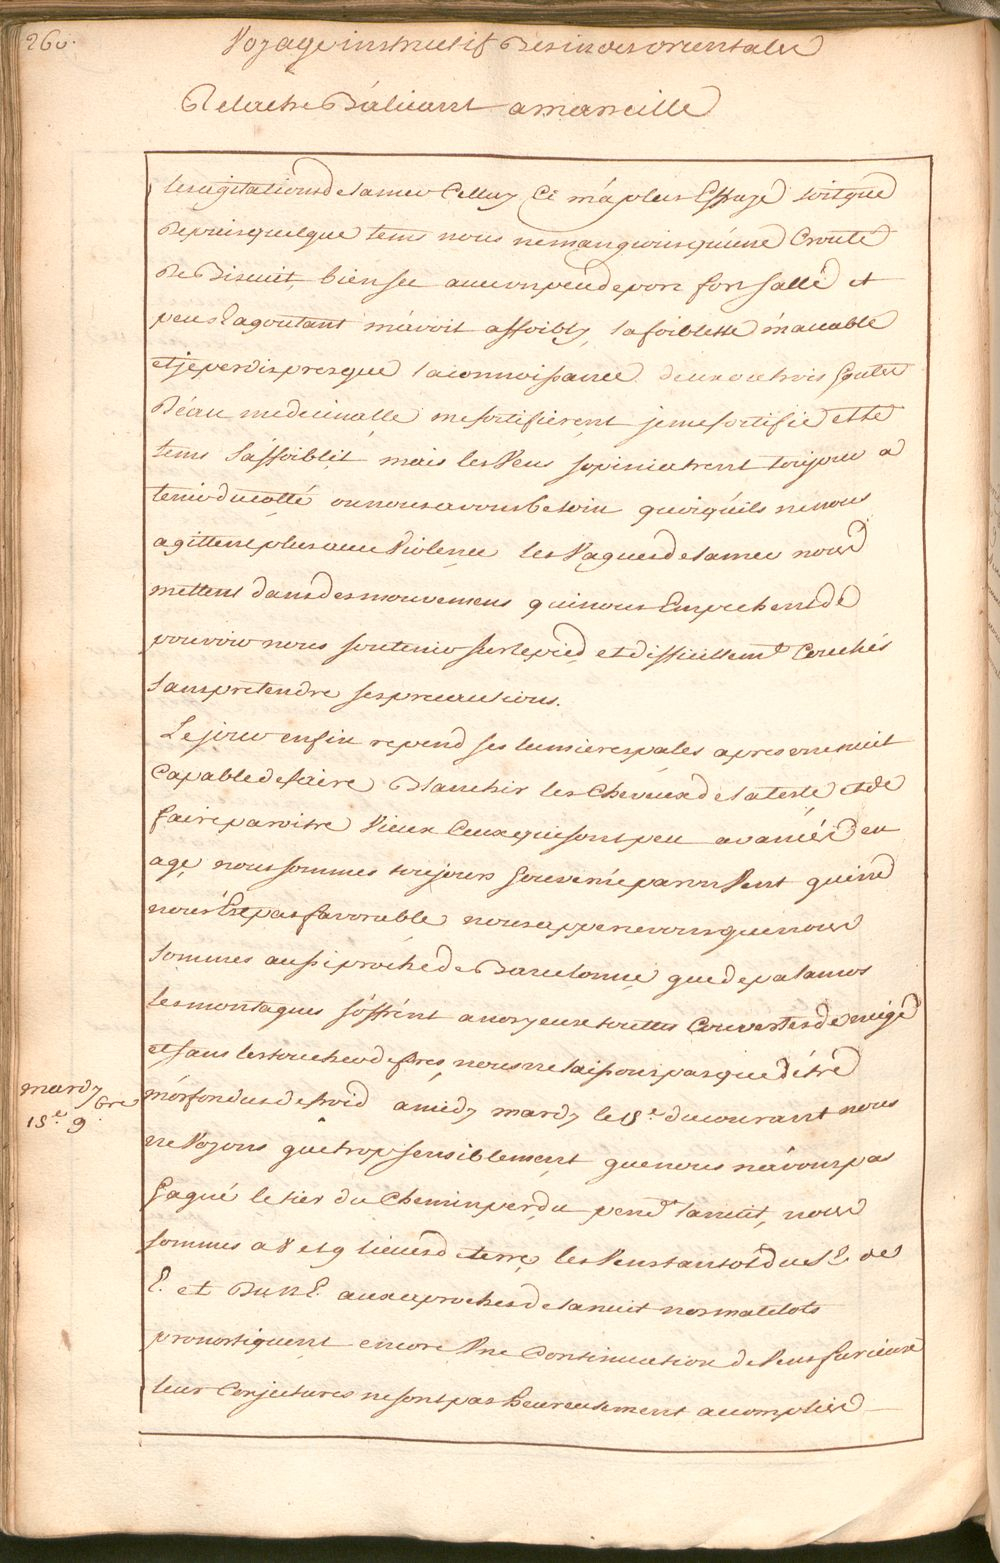 260.
Voyage instructif Des indes orientales
Relache D'alicant a marseille
les agitations de la mer Celluy Ce m'a plus Effrayé soit que
Depuis quelque tems nous ne mangions qu'une Croute
De Biscuit, bien sec avec un peu de porc fort sallé et
peu Ragoutant m'avoit affoibly, la foiblesse m'accable
et je perdis presque la connoissance deux ou trois Goutes
D'eau medecinalle me fortifierent je me fortifie et le
tems s'affoiblit mais les Vens s'opiniatrent toujour a
tenir du cotté ou nous avons besoin quoiqu'ils ne nous
agittent plus avec Violence les Vagues de la mer nous
mettent dans des mouvemens qui nous Empechent de
pouvoir nous soutenir sur le pied, et difficillemt. Couchés
sans prendre ses precautions.
Le jour enfin repend ses lumieres pales apres une nuit
Capable de faire Blanchir les Cheveux de la teste et de
faire paroitre Vieux Ceux qui sont peu avancés en
age, nous sommes toujours Gouverné par un Vent qui ne
nous Est pas favorable nous appercevons que nous
sommes aussi proche de Barcelonne que de palamos
les montagnes s'offrent a nos yeux touttes Couvertes de neige
et sans les toucher de pres nous ne laissons pas que d'étre
morfondus de froid a midy mardy le 18e. du courant nous
mardy
18e. 9bre
ne Voyons que trop sensiblement que nous n'avons pas
Gagné le tier du Chemin perdu pend. la nuit, nous
sommes a 8 et 9 lieues de terre les Vens tantot du S E. de
E. et Du N E. aux approches de la nuit nos matelots
pronostiquent encore Une Continuation de Vens furieux
leur Conjectures ne sont pas heureusement accomplies